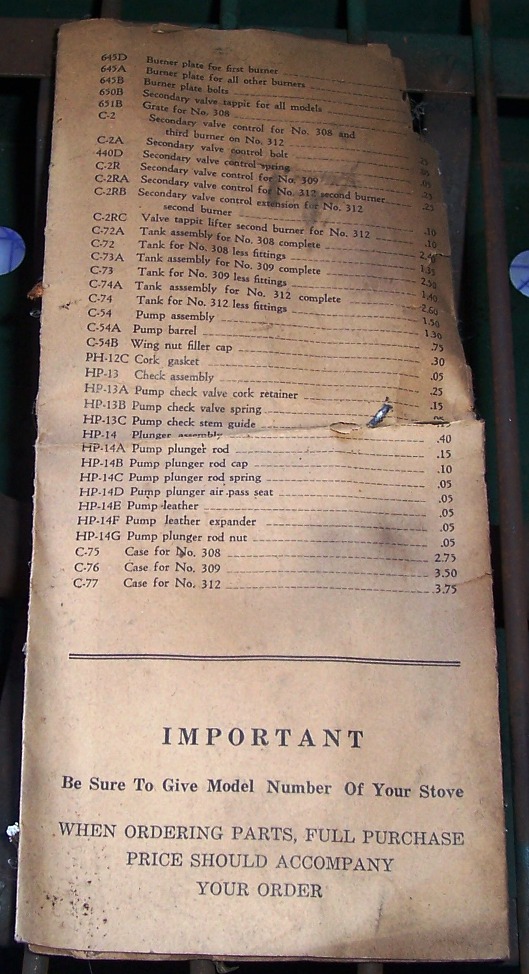 645D Burner plate for first burner
645A Burner plate for all other burners
645B Burner plate bolts
650B Secondary valve tappit for all models
651B Grate for No. 308
C-2 Secondary valve control for No. 308 and
third burner on No. 312
C-2A Secondary valve control bolt
440D Secondary valve control spring .05
C-2R Secondary valve control for No. 309 .25
C-2RA Secondary valve control for No. 312 second burner .25
C-2RB Secondary valve control extension for No. 312
second burner .10
C-2RC Valve tappit lifter second burner for No. 312 .10
C-72A Tank assembly for No. 308 complete 2.40
C-72 Tank for No. 308 less fittings 1.35
C-73A Tank assembly for No. 309 complete 2.50
C-73 Tank for No. 309 less fittings 1.40
C-74A Tank asssembly for No. 312 complete 2.60
C-74 Tank for No. 312 less fittings 1.50
C-54 Pump assembly 1.30
C-54A Pump barrel .75
C-54B Wing nut filler cap .30
PH-12C Cork gasket .05
HP-13 Check assembly .25
HP-13A Pump check valve cork retainer .15
HP-13B Pump check valve spring .05
HP-13C Pump check stem guide
HP-14 Plunger assembly .40
HP-14A Pump plunger rod .15
HP-14B Pump plunger rod cap .10
HP-14C Pump plunger rod spring .05
HP-14D Pump plunger air pass seat .05
HP-14E Pump leather .05
HP-14F Pump leather expander .05
HP-14G Pump plunger rod nut .05
C-75 Case for No. 308 2.75
C-76 Case for No. 309 3.50
C-77 Case for No. 312 3.75
IMPORTANT
Be Sure To Give Model Number Of Your Stove
WHEN ORDERING PARTS, FULL PURCHASE
PRICE SHOULD ACCOMPANY
YOUR ORDER